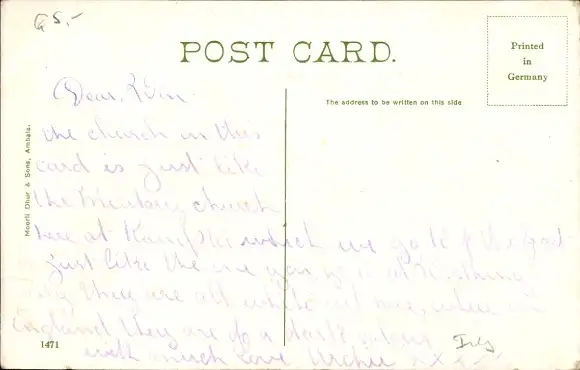 65,-
POST CARD.
Printed
in
Germany
The address to be written on this side
Moorli Dhur & Sons, Ambala.
Dear
the church in this
card is just like
the church
here at which we go to
just like the one you go to at
they are all white out here, where in
England they are of a dark colour
with much love Archie xx
1471